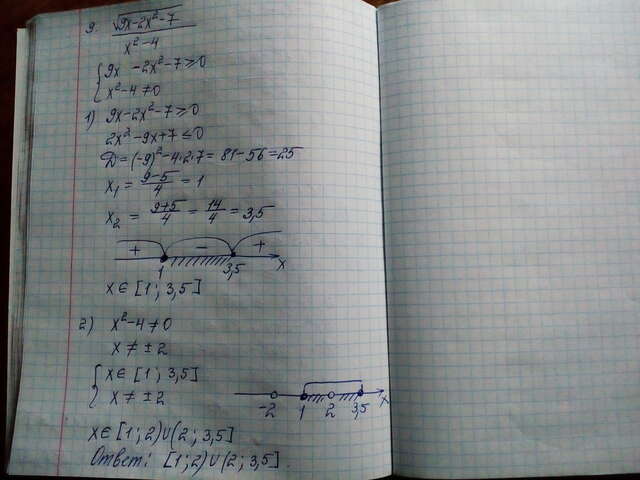 9. √(9x-2x²-7) / (x²-4)
{ 9x -2x²-7≥0
x²-4≠0
1) 9x-2x²-7≥0
2x²-9x+7≤0
D=(-9)²-4·2·7= 81-56=25
x₁ = (9-5)/4 = 1
x₂ = (9+5)/4 = 14/4 = 3,5
+ - +
1 3,5 x
x∈[1; 3,5]
2) x²-4≠0
x≠±2
{ x∈[1; 3,5]
x≠±2
-2 1 2 3,5 x
x∈[1;2)∪(2; 3,5]
Ответ: [1;2)∪(2; 3,5].